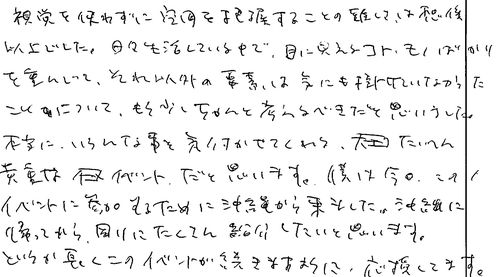 視覚を使わずに空間を把握することの難しさは想像
以上でした。日々生活している中で、目に見えるコト、モノばかり
を重んじて、それ以外の要素は気にも掛けていなかった
ことについて、もう少しちゃんと考えるべきだと思いました。
本当に、いろんな事を気付かせてくれる、たいへん
貴重なイベントだと思います。僕は今回、この
イベントに参加するために沖縄から来ました。沖縄に
帰ってから、周りにたくさん話したいと思います。
どうか長くこのイベントが続きますように、応援してます。